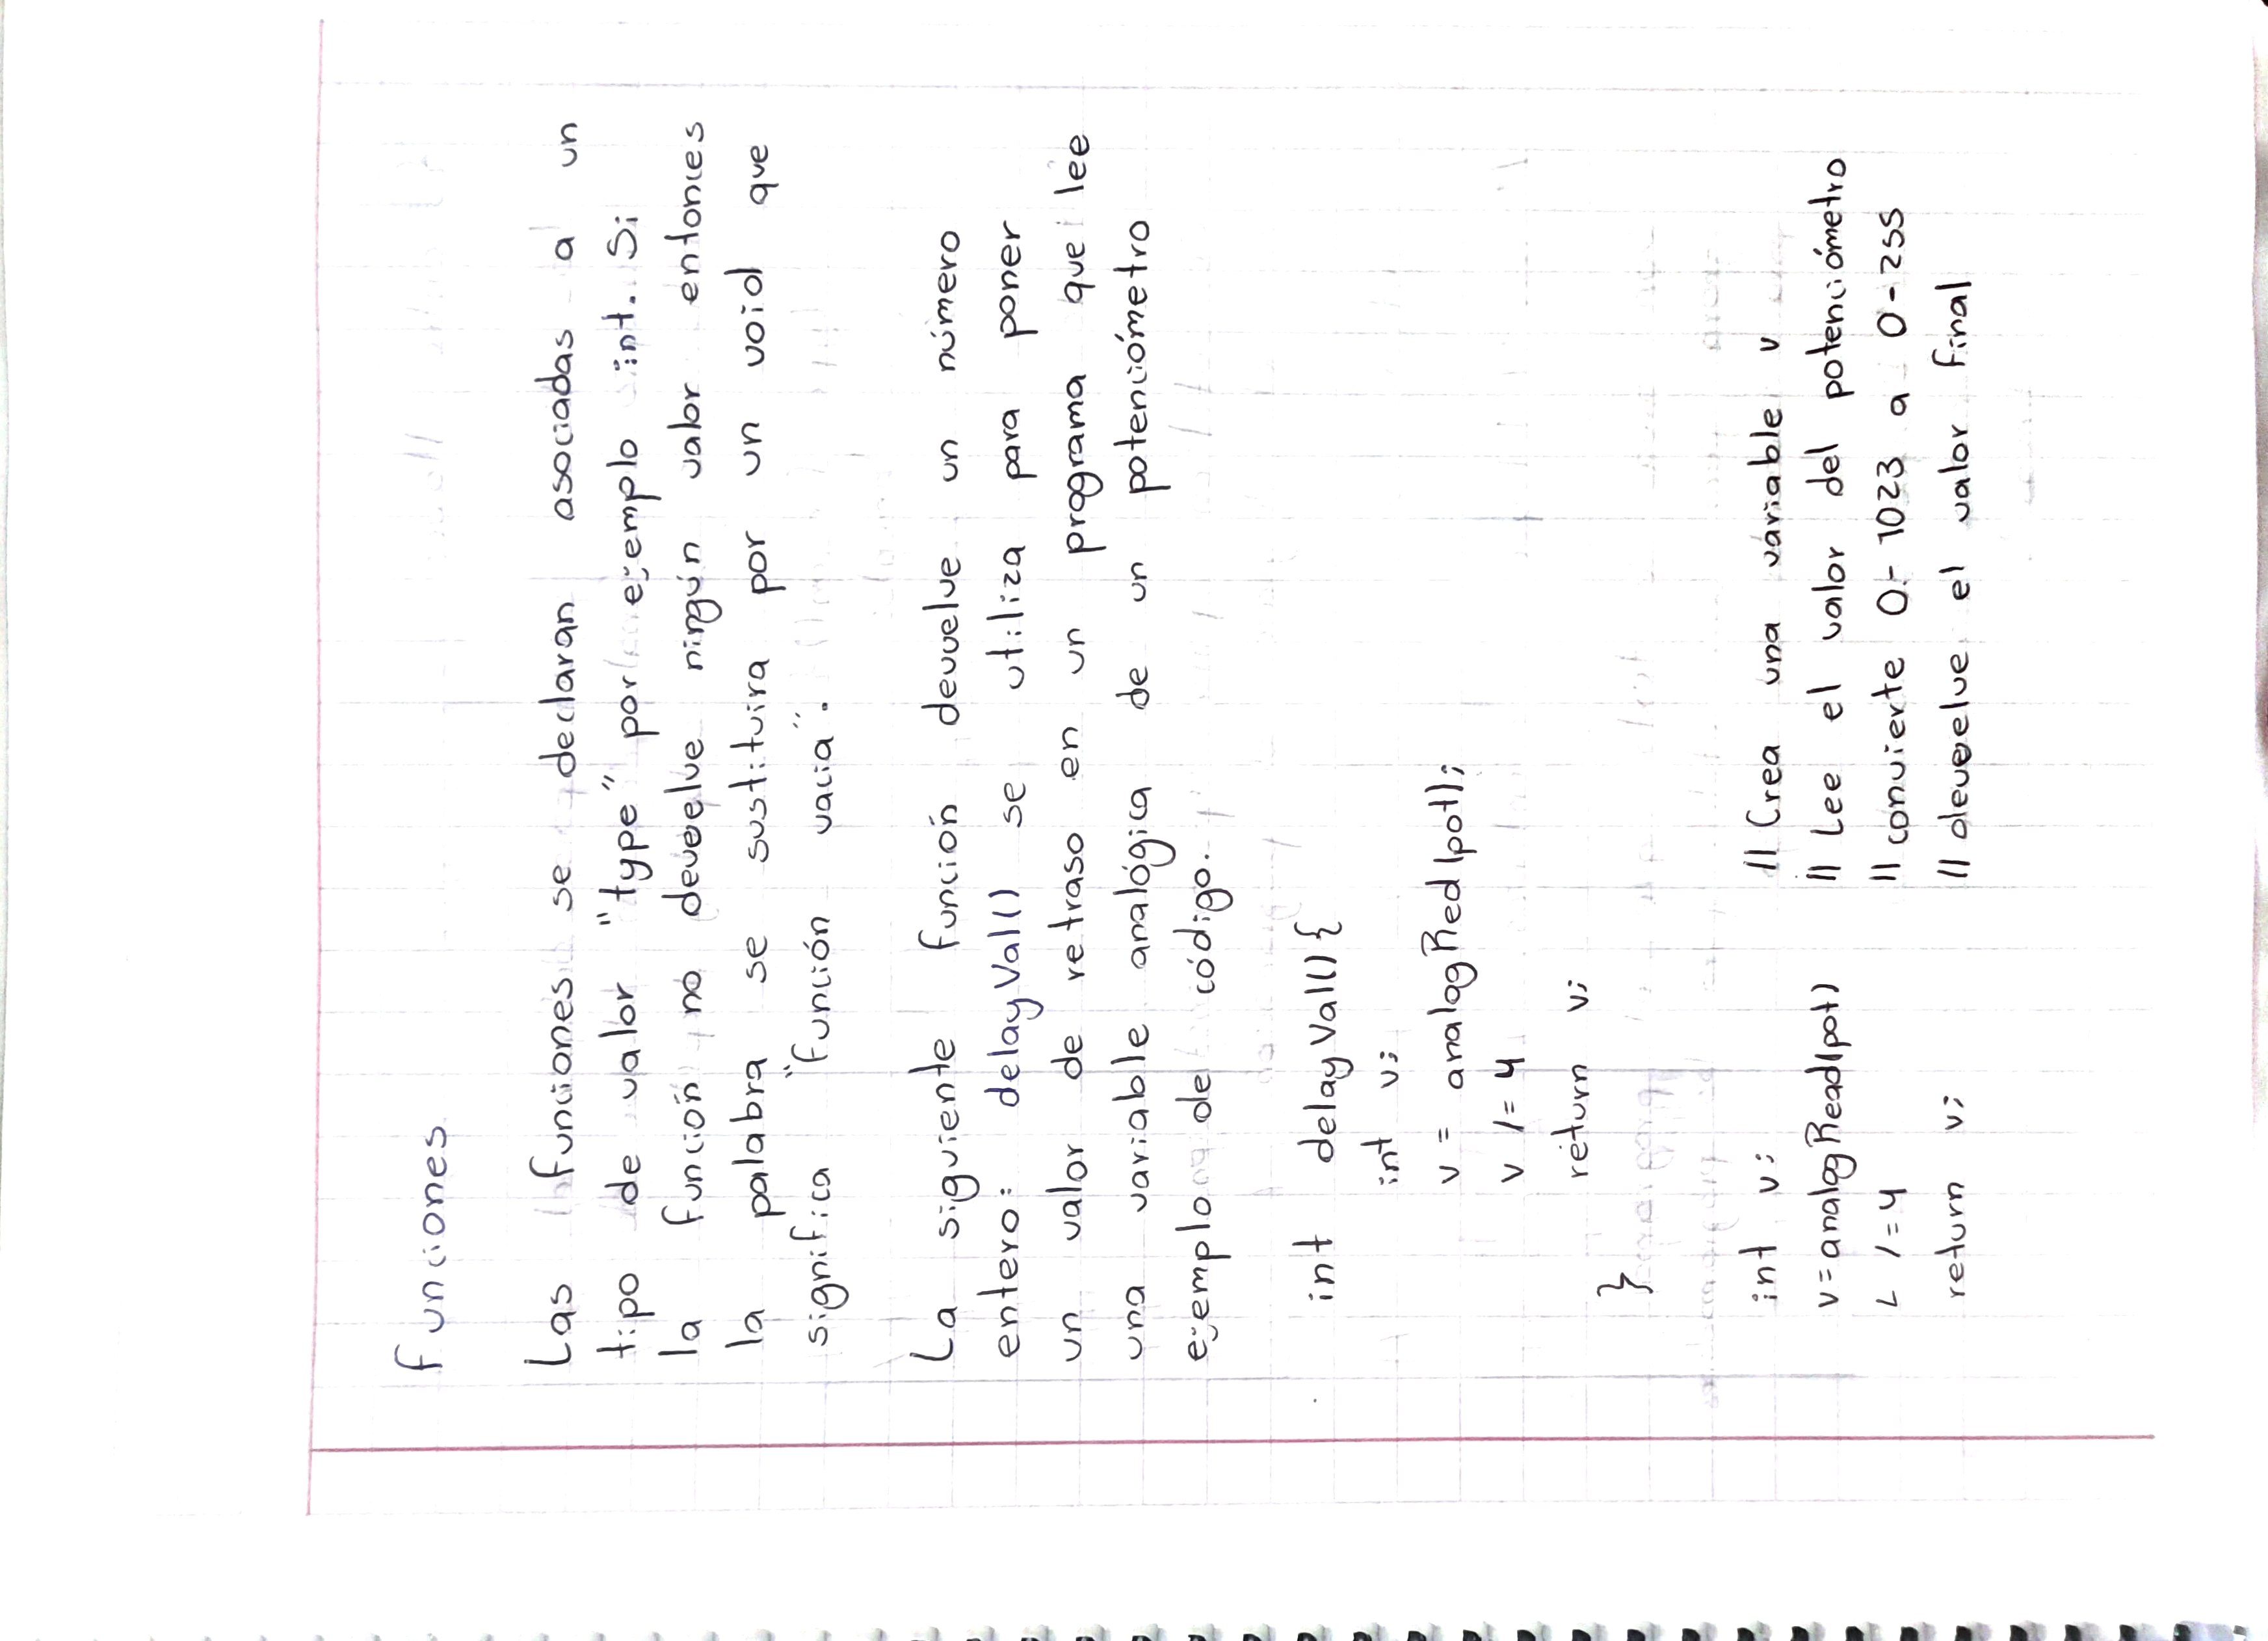 Funciones
Las funciones se declaran asociadas a un
tipo de valor "type" por ejemplo int. Si
la función no devuelve ningún valor entonces
la palabra se sustituira por un void que
significa "Función vacia".
La siguiente función devuelve un número
entero: delayVal() se utiliza para poner
un valor de retraso en un programa que lee
una variable analógica de un potenciómetro
ejemplo de código.
int delayVal(){
int v;
v = analogRed(pot);
v /= 4
return v;
}
int v; // Crea una variable v
v=analogRead(pot) // Lee el valor del potenciómetro
L /=4 // convierte 0-1023 a 0-255
return v; // devuelve el valor final